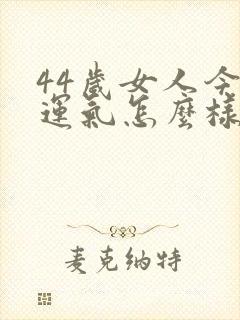 44歲女人今
運氣怎麼樣
麦克纳特